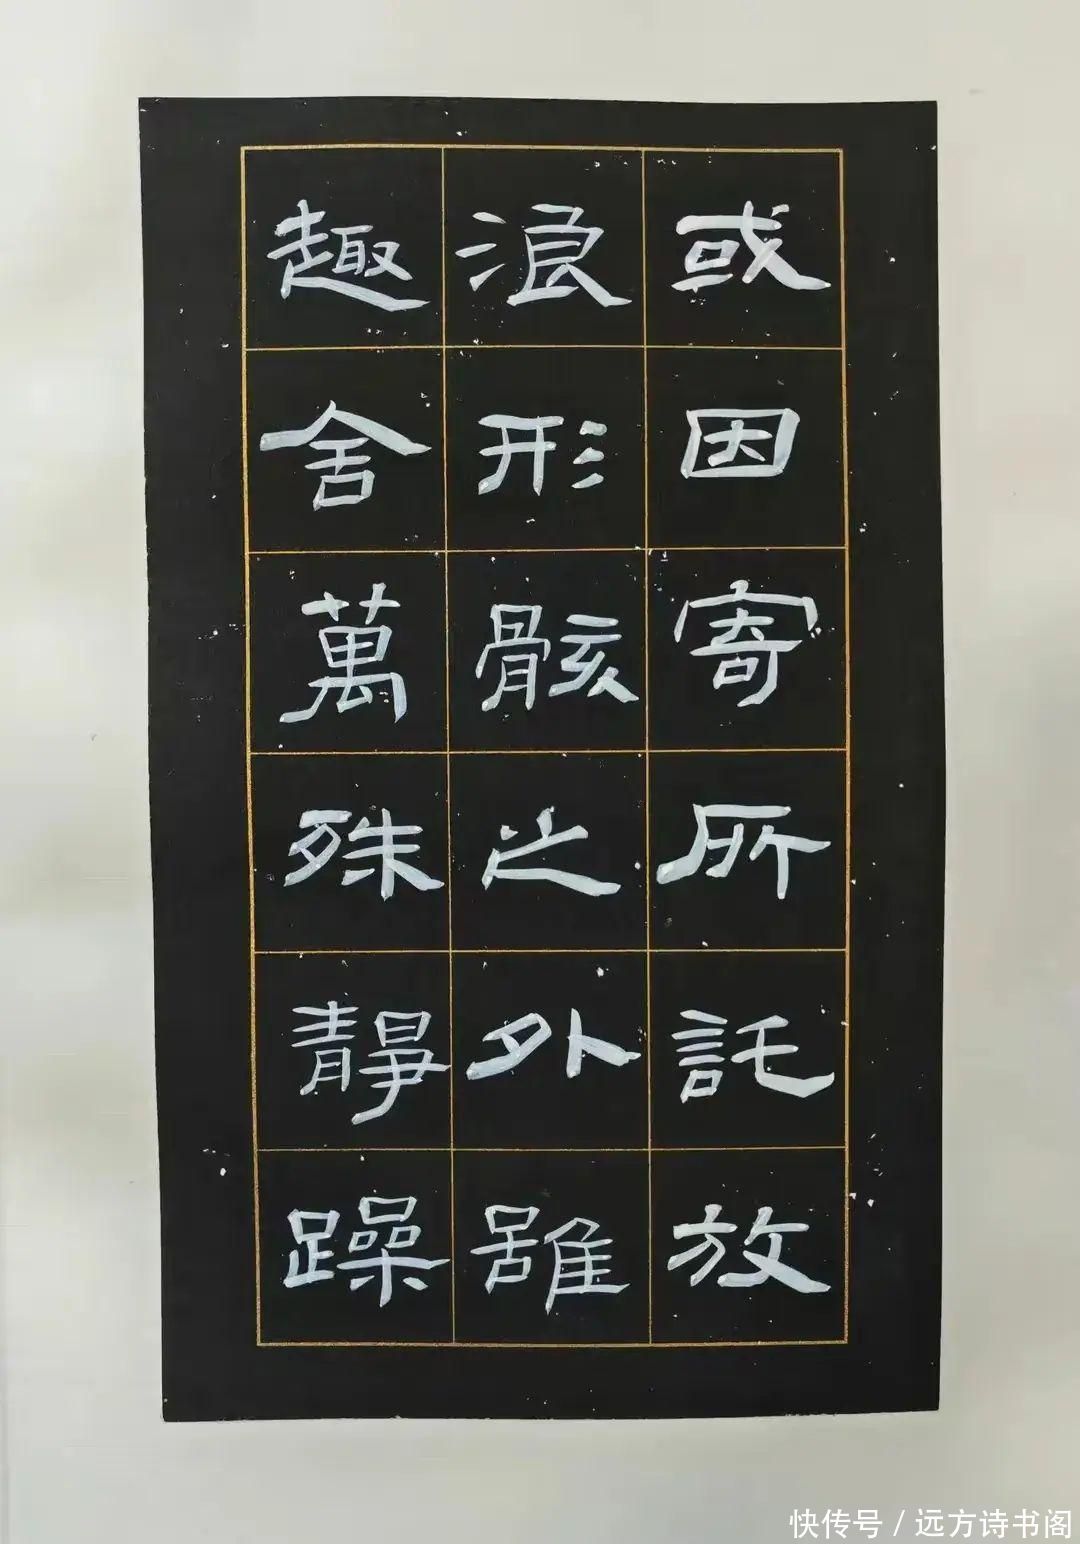 或因寄所託放
浪形骸之外雖
趣舍萬殊靜躁
快传号/远方诗书阁